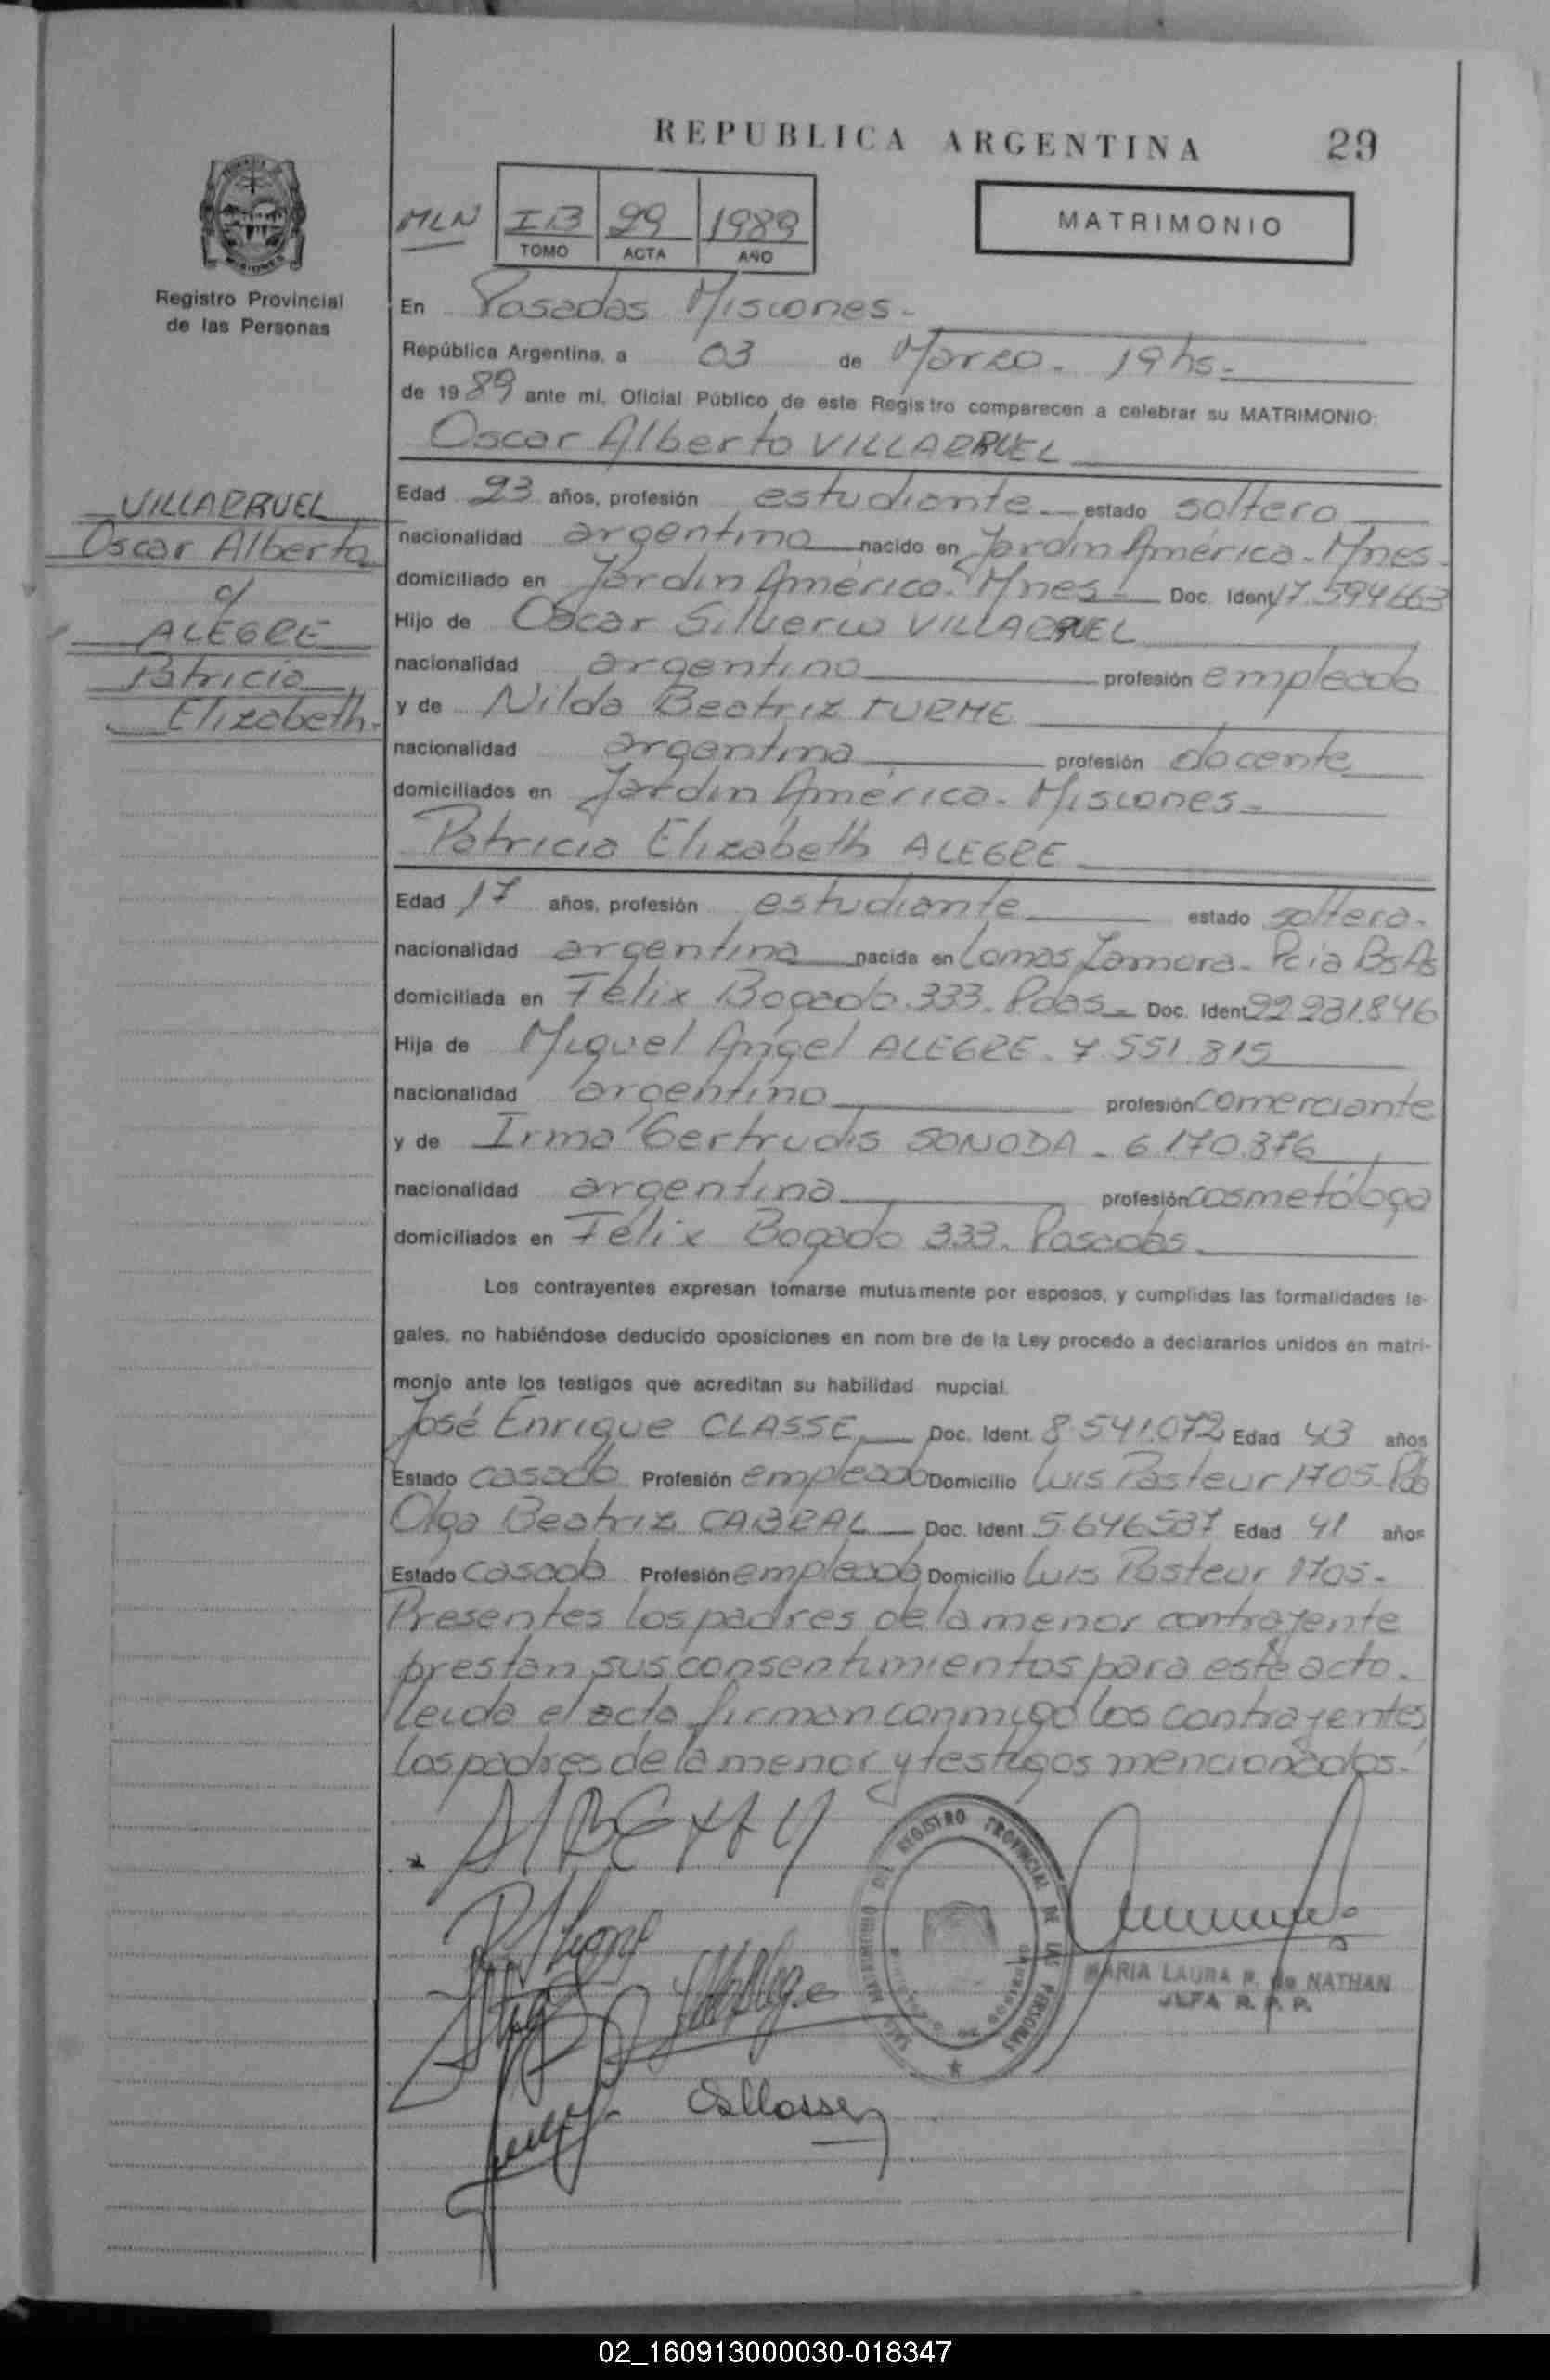 REPUBLICA ARGENTINA 29
MLN I.B 29 1989
TOMO ACTA AÑO
MATRIMONIO
MISIONES
Registro Provincial
de las Personas
En Posadas Misiones.-
República Argentina, a 03 de Marzo. 19 hs.-
de 1989 ante mí, Oficial Público de este Registro comparecen a celebrar su MATRIMONIO:
Oscar Alberto VILLARRUEL
VILLARRUEL
Oscar Alberto
c/
ALEGRE
Patricia
Elizabeth.
Edad 23 años, profesión estudiante estado soltero
nacionalidad argentino nacido en Jardín América. Mnes.
domiciliado en Jardín América. Mnes.- Doc. Ident 17.594663
Hijo de Oscar Silverio VILLARRUEL
nacionalidad argentino profesión empleado
y de Nilda Beatriz TURME
nacionalidad argentina profesión docente
domiciliados en Jardín América. Misiones.-
Patricia Elizabeth ALEGRE
Edad 17 años, profesión estudiante estado soltera.
nacionalidad argentina nacida en Lomas Zamora. Pcia Bs As
domiciliada en Félix Bogado 333. Pdas.- Doc. Ident 22 231.846
Hija de Miguel Angel ALEGRE. 7.551.815
nacionalidad argentino profesión comerciante
y de Irma Gertrudis SONODA. 6.170.376
nacionalidad argentina profesión cosmetóloga
domiciliados en Félix Bogado 333. Posadas.
Los contrayentes expresan tomarse mutuamente por esposos, y cumplidas las formalidades le-
gales, no habiéndose deducido oposiciones en nom bre de la Ley procedo a declararlos unidos en matri-
monio ante los testigos que acreditan su habilidad nupcial.
José Enrique CLASSE Doc. Ident. 8.541.072 Edad 43 años
Estado casado Profesión empleado Domicilio Luis Pasteur 1705. Pdas
Olga Beatriz CABRAL Doc. Ident 5.646537 Edad 41 años
Estado casada Profesión empleada Domicilio Luis Pasteur 1705.-
Presentes los padres de la menor contrayente
prestan sus consentimientos para este acto.
Leída el acta firman conmigo los contrayentes,
los padres de la menor y testigos mencionados.
REGISTRO PROVINCIAL DE LAS PERSONAS
MARIA LAURA P. de NATHAN
JEFA R. P. P.
02_160913000030-018347